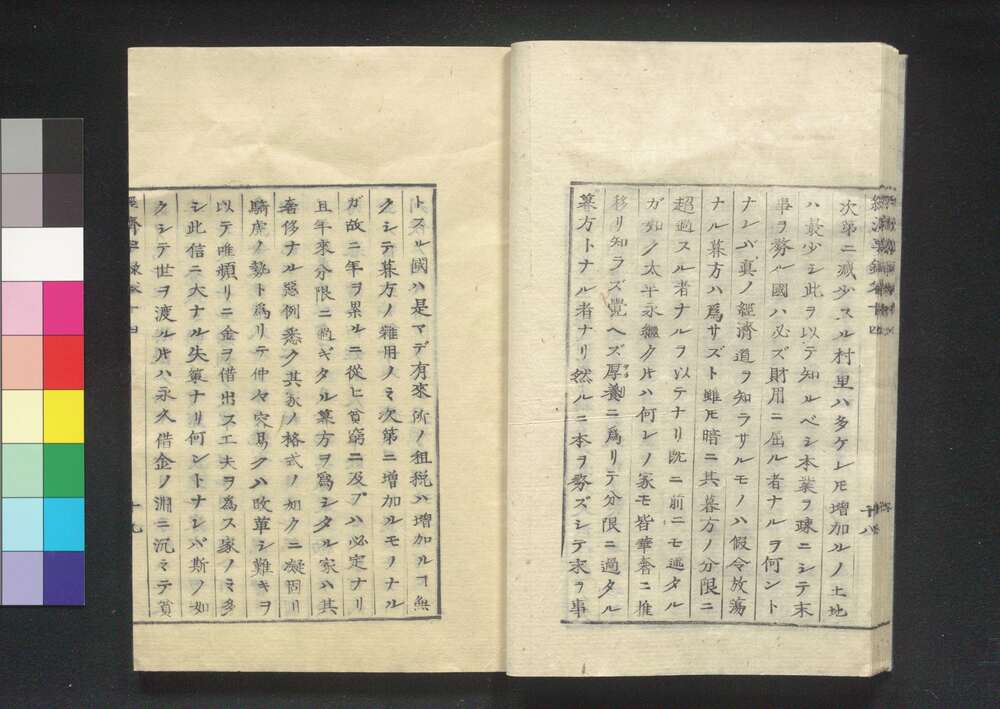 次第ニ減少スル村里ハ多ケレ𪜈増加ルノ土地
ハ最少シ此ヲ以テ知ルベシ本業ヲ踈ニシテ末
事ヲ務ル國ハ必ズ財用ニ屈ル者ナルヲ何ント
ナレバ真ノ經濟道ヲ知ラサルモノハ假令放蕩
ナル暮方ハ為サズト雖𪜈暗ニ其暮方ノ分限ニ
超過スル者ナルヲ以テナリ既ニ前ニモ述タル
ガ如ク太平永繼ク𪜈ハ何レノ家モ皆華奢ニ推
移リ知ラズ覺ヘズ厚養ニ為リテ分限ニ過タル
暮方トナル者ナリ然ルニ本ヲ務ズシテ末ヲ事
十八
トスル國ハ是マデ有來所ノ租税ハ增加ルヿ無
クシテ暮方ノ雜用ノミ次第ニ増加ルモノナル
ガ故ニ年ヲ累ルニ從ヒ貧窮ニ及ブハ必定ナリ
且年來分限ニ過ギタル暮方ヲ為シタル家ハ其
奢侈ナル惡例悉ク其家ノ格式ノ如クニ凝固リ
騎虎ノ勢ト為リテ仲々容易クハ改革シ難キヲ
以テ唯頻リニ金ヲ借出スエ夫ヲ為ス家ノミ多
シ此信ニ大ナル失策ナリ何ントナレバ斯ノ如
クシテ世ヲ渡ル𪜈ハ永久借金ノ淵ニ沉ミテ貧
十九